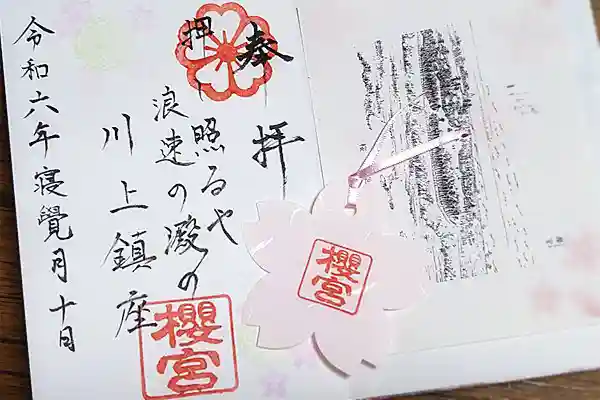 奉
拝
押し照るや
浪速の澱の
川上鎮座
令和六年寝覺月十日
櫻宮
櫻宮